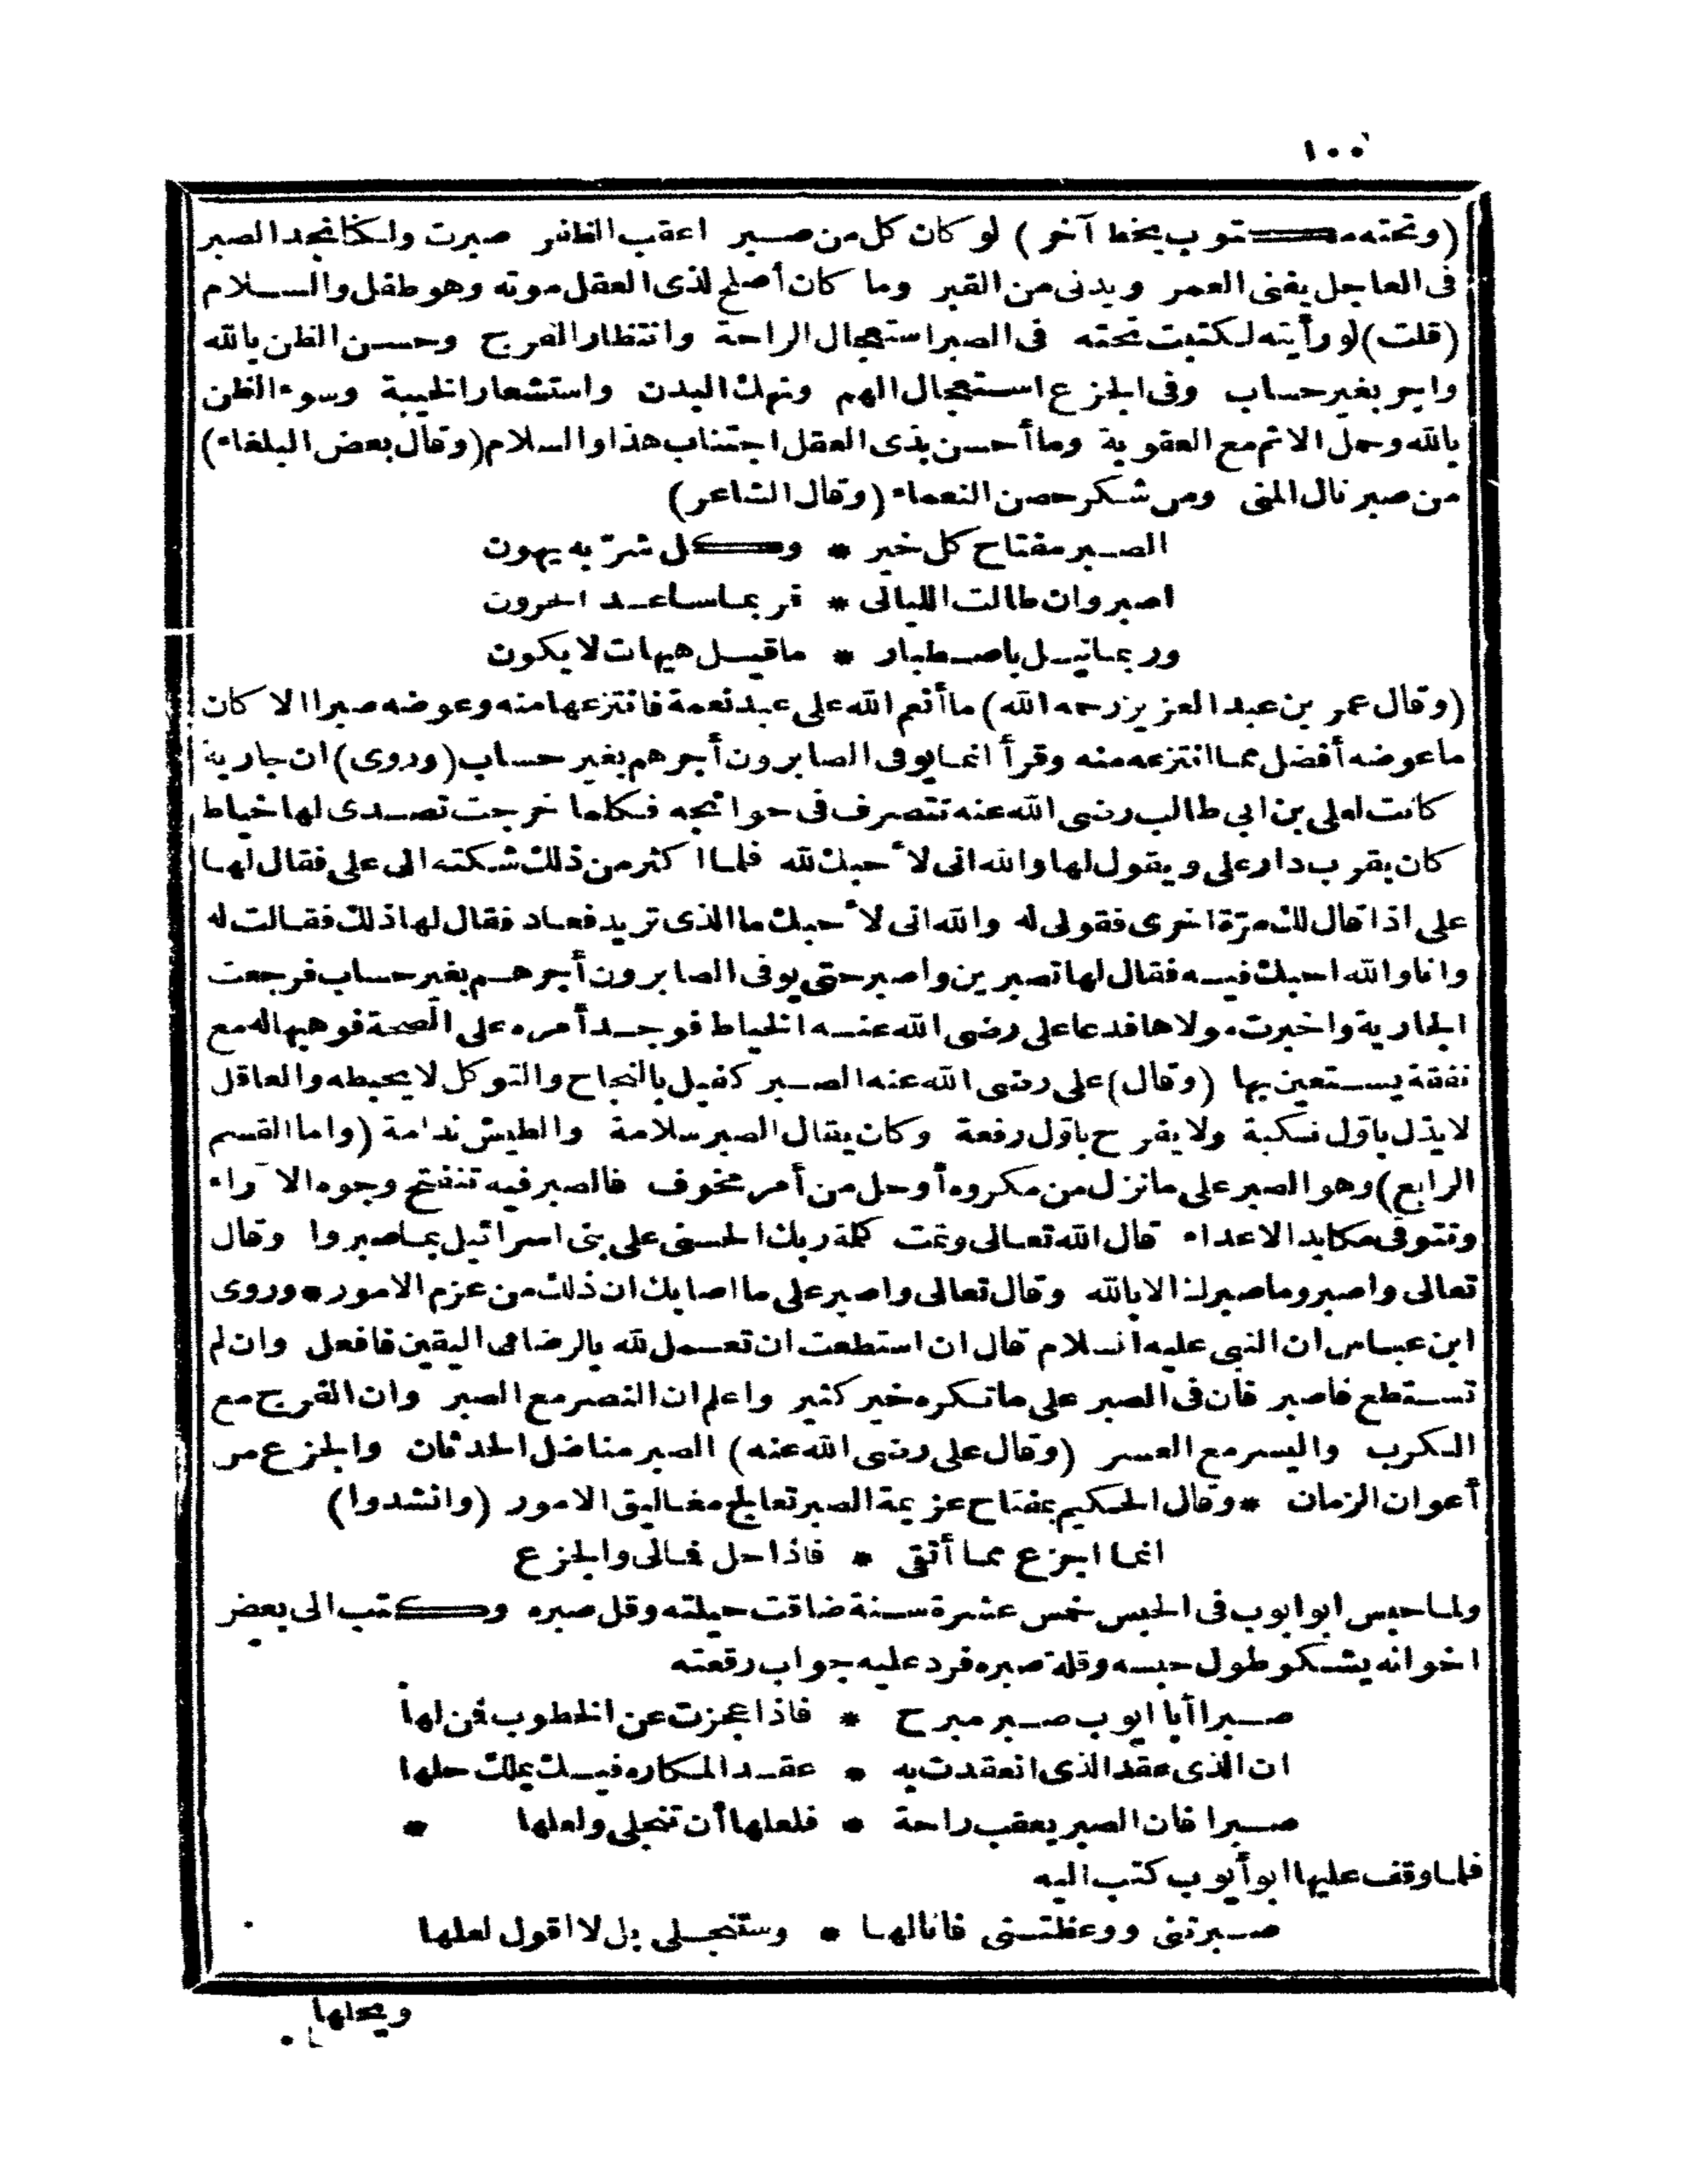 ١٠٠
(وتحته مكتوب بخط آخر) لو كان كل من صبر اعقب الظفر صبرت ولكنا نجد الصبر
فى العاجل يفنى العمر ويدنى من القبر وما كان أصلح لذى العقل موته وهو طفل والسلام
(قلت) لو رأيته لكتبت تحته فى الصبر استعجال الراحة وانتظار الفرج وحسن الظن بالله
واجر بغير حساب وفى الجزع استعجال الهم ونهك البدن واستشعار الخيبة وسوء الظن
بالله وحمل الاثم مع العقوبة وما أحسن بذى العقل اجتناب هذا والسلام (وقال بعض البلغاء)
من صبر نال المنى ومن شكر حصن النعماء (وقال الشاعر)
الصبر مفتاح كل خير * وكل شرّ به يهون
اصبر وان طالت الليالى * فربما ساعد الحرون
وربما نيل باصطبار * ما قيل هيهات لا يكون
(وقال عمر بن عبد العزيز رحمه الله) ما أنعم الله على عبد نعمة فانتزعها منه وعوضه صبرا الا كان
ما عوضه أفضل مما انتزعه منه وقرأ انما يوفى الصابرون أجرهم بغير حساب (وروى) ان جارية
كانت لعلى بن ابى طالب رضى الله عنه تتصرف فى حوائجه فكلما خرجت تصدى لها خياط
كان بقرب دار على ويقول لها والله انى لأحبك لله فلما اكثر من ذلك شكته الى على فقال لها
على اذا قال لك مرّة اخرى فقولى له والله انى لأحبك ما الذى تريد فعاد فقال لها ذلك فقالت له
وانا والله احبك فيه فقال لها تصبرين واصبر حتى يوفى الصابرون أجرهم بغير حساب فرجعت
الجارية واخبرت مولاها فدعا على رضى الله عنه الخياط فوجد أمره على الصحة فوهبها له مع
نفقة يستعين بها (وقال) على رضى الله عنه الصبر كفيل بالنجاح والتوكل لا يحبطه والعاقل
لا يذل باوّل نكبة ولا يفرح باوّل رفعة وكان يقال الصبر سلامة والطيش ندامة (واما القسم
الرابع) وهو الصبر على ما نزل من مكروه أو حل من أمر مخوف فالصبر فيه تنفتح وجوه الآراء
وتتوقى مكايد الاعداء قال الله تعالى وتمت كلمة ربك الحسنى على بنى اسرائيل بما صبروا وقال
تعالى واصبر وما صبرك الا بالله وقال تعالى واصبر على ما اصابك ان ذلك من عزم الامور * وروى
ابن عباس ان النبى عليه السلام قال ان استطعت ان تعمل لله بالرضا فى اليقين فافعل وان لم
تستطع فاصبر فان فى الصبر على ما تكره خير كثير واعلم ان النصر مع الصبر وان الفرج مع
الكرب واليسر مع العسر (وقال على رضى الله عنه) الصبر مناضل الحدثان والجزع من
أعوان الزمان * وقال الحكيم بمفتاح عزيمة الصبر تعالج مغاليق الامور (وانشدوا)
انما اجزع مما أتقى * فاذا حل فمالى والجزع
ولما حبس ابو ايوب فى الحبس خمس عشرة سنة ضاقت حيلته وقل صبره وكتب الى بعض
اخوانه يشكو طول حبسه وقلة صبره فرد عليه جواب رقعته
صبرا أبا ايوب صبر مبرح * فاذا عجزت عن الخطوب فمن لها
ان الذى عقد الذى انعقدت به * عقد المكاره فيك يملك حلها
صبرا فان الصبر يعقب راحة * فلعلها أن تنجلى ولعلها *
فلما وقف عليها ابو أيوب كتب اليه
صبرتنى ووعظتنى فانا لها * وستنجلى بل لا اقول لعلها
ويحلها